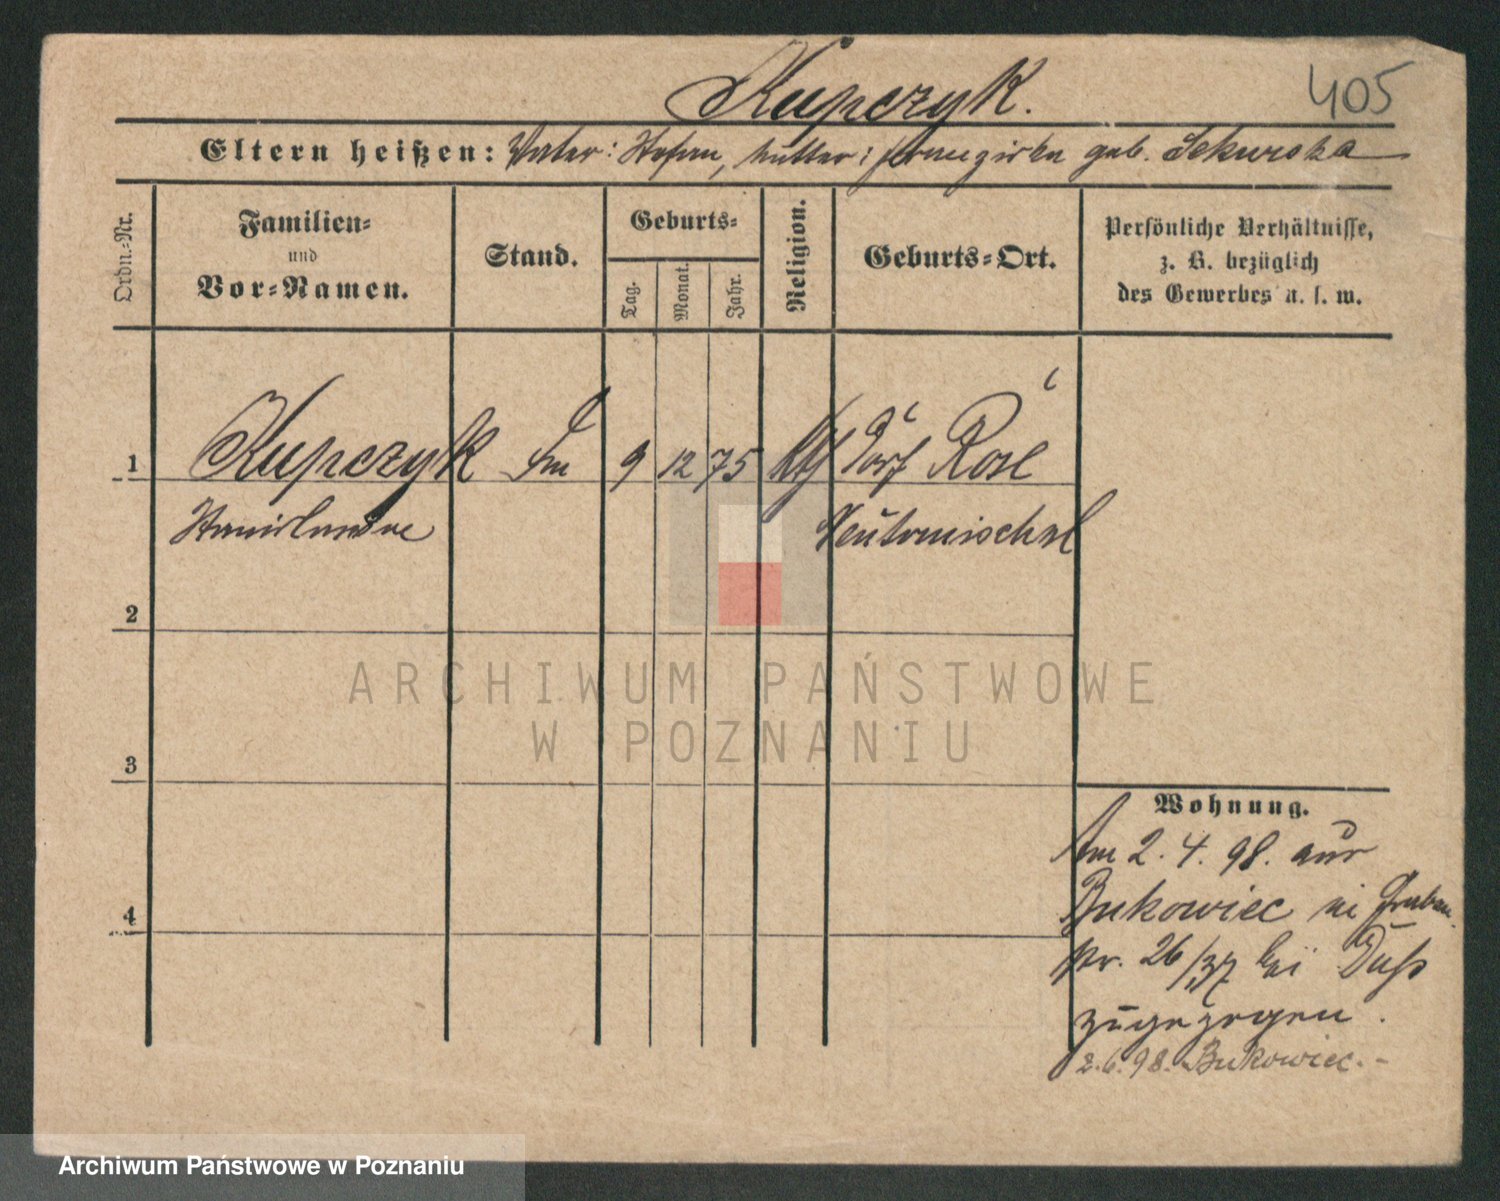 Kupczyk.
405
Eltern heißen: Vater: Stefan, Mutter: Franziska geb. Sekurska
Ordn.-Nr.
Familien-
und
Vor-Namen.
Stand.
Geburts-
Tag.
Monat.
Jahr.
Religion.
Geburts-Ort.
Persönliche Verhältnisse,
z. B. bezüglich
des Gewerbes u. s. w.
1 Kupczyk 9 12 75 kth Dorf Rose
Stanislaus Neutomischel
2
3
4
Wohnung.
Am 2. 4. 98. aus
Bukowiec in Graben
Nr. 26/37 bei Duss
zugezogen.
2.6.98. Bukowiec.-
ARCHIWUM PAŃSTWOWE
W POZNANIU
Archiwum Państwowe w Poznaniu